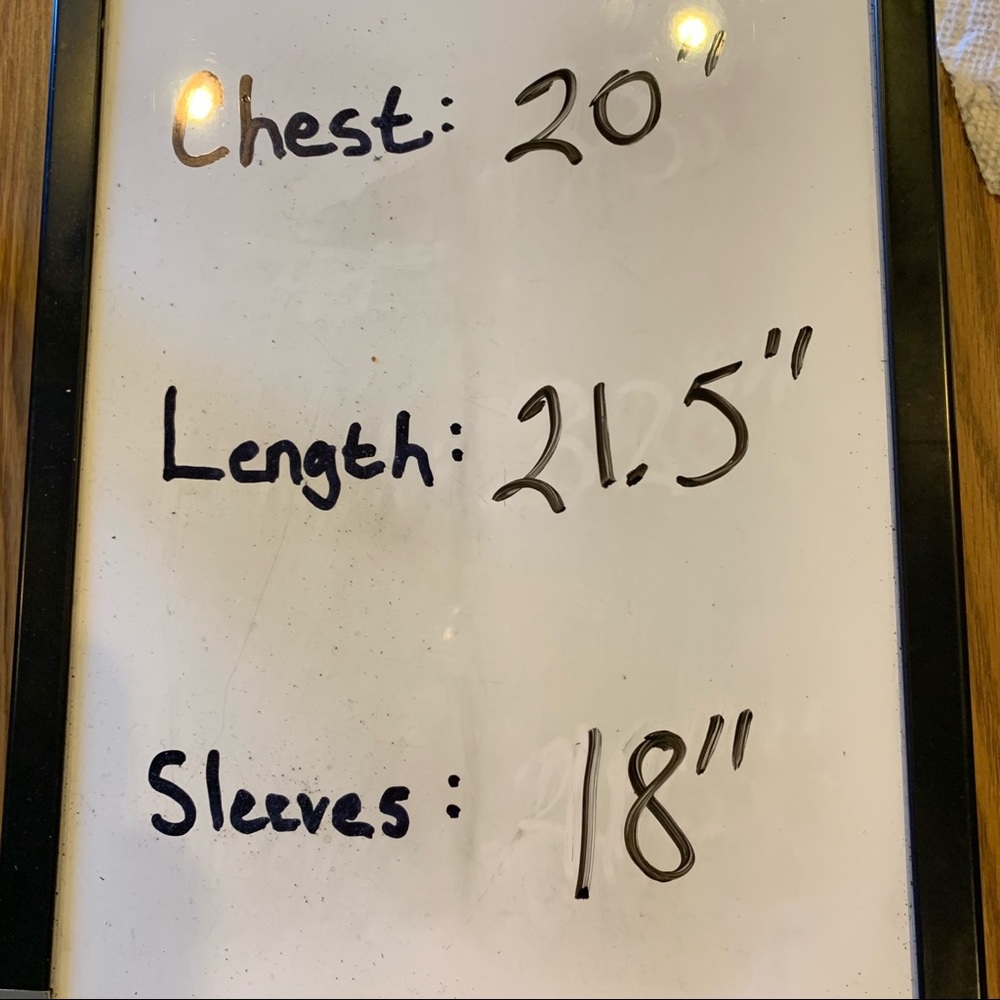 Chest: 20"
Length: 21.5"
Sleeves: 18"